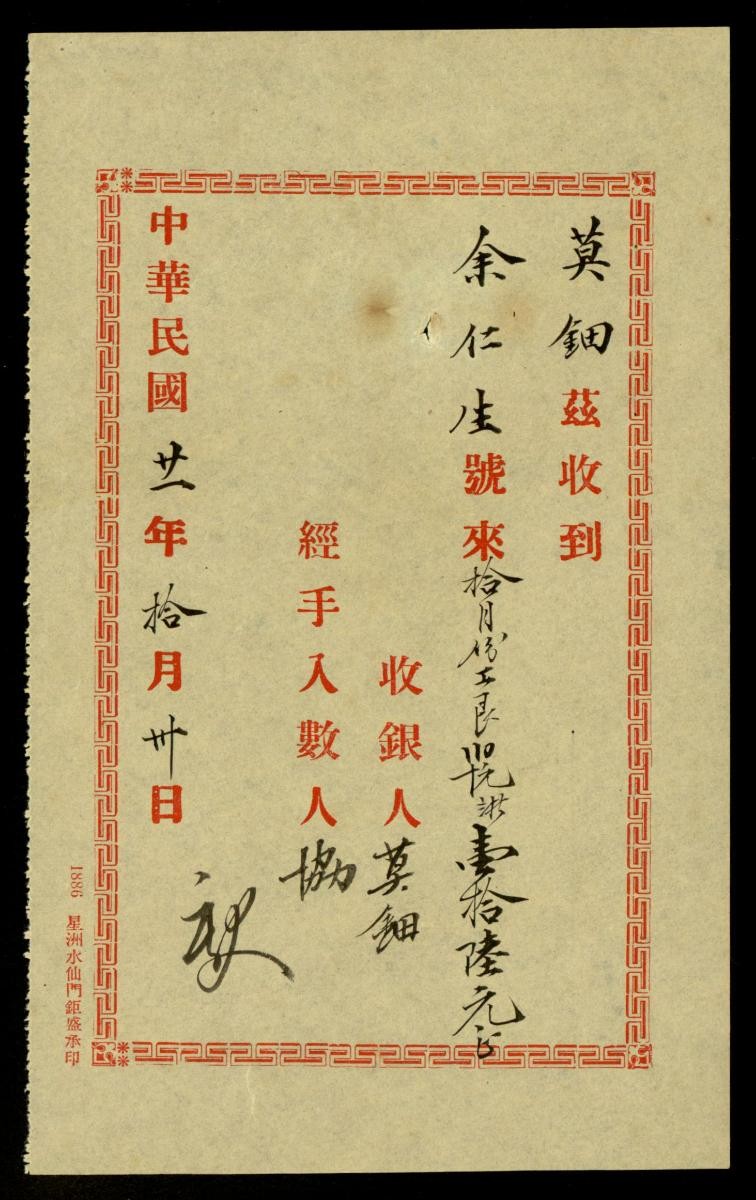 莫鈿茲收到
余仁生號來拾月份工艮壹拾陸元
收銀人莫鈿
經手入數人協
中華民國廿一年拾月卅日
1886 星洲水仙門鉅盛承印